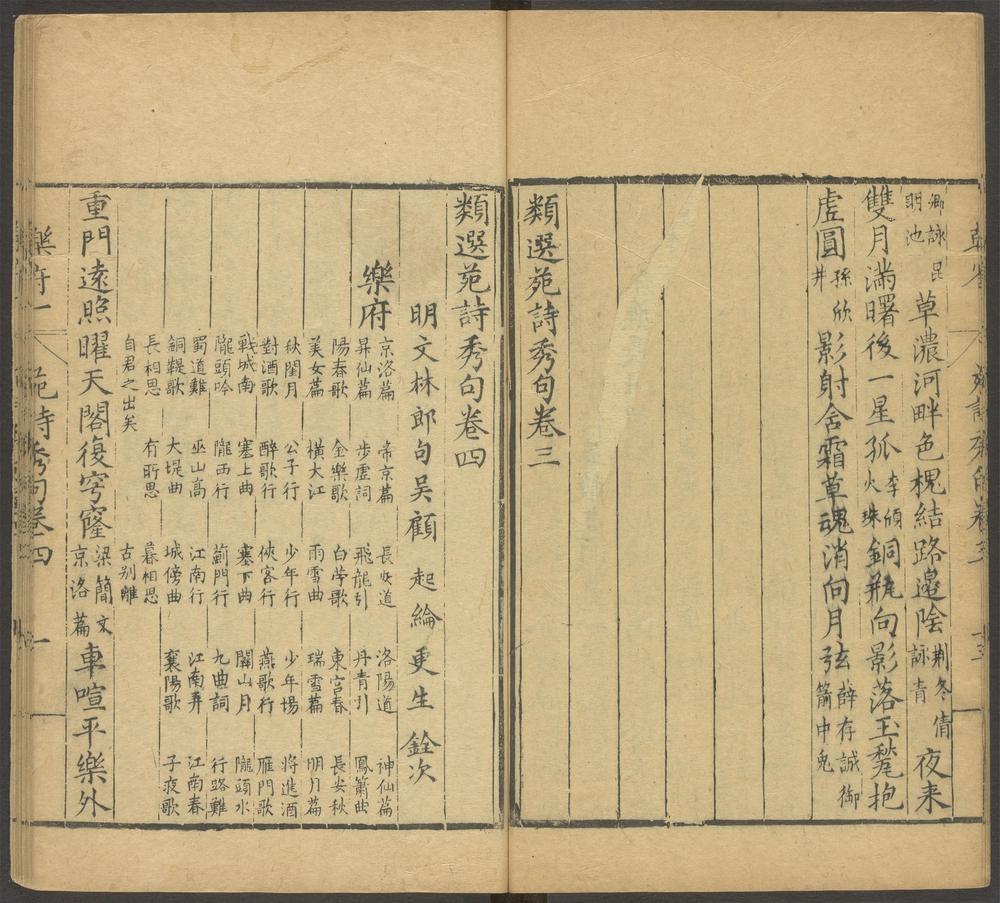 卿詠昆明池 草濃河畔色槐結路邊陰 荆冬倩詠青 夜来
雙月滿曙後一星孤 李頎火珠 銅瓶向影落玉甃抱
虛圓 孫欣井 影射舍霜草魂消向月弦 薛存誠御箭中兔
類選苑詩秀句卷三
類選苑詩秀句卷四
明文林郎句吳顧 起綸更生 銓次
樂府 京洛篇 帝京篇 長安道 洛陽道 神仙篇
昇仙篇 步虛詞 飛龍引 丹青引 鳳簫曲
陽春歌 金樂歌 白苧歌 東宮春 長安秋
美女篇 橫大江 雨雪曲 瑞雪篇 明月篇
秋閨月 公子行 少年行 少年場 將進酒
對酒歌 醉歌行 俠客行 燕歌行 雁門歌
戰城南 塞上曲 塞下曲 關山月 隴頭水
隴頭吟 隴西行 薊門行 九曲詞 行路難
蜀道難 巫山高 江南行 江南弄 江南春
銅鞮歌 大堤曲 城傍曲 襄陽歌 子夜歌
長相思 有所思 暮相思
自君之出矣 古別離
重門遠照曜天閣復穹窿 梁簡文京洛篇 車喧平樂外
樂府一 苑詩秀句卷四 一